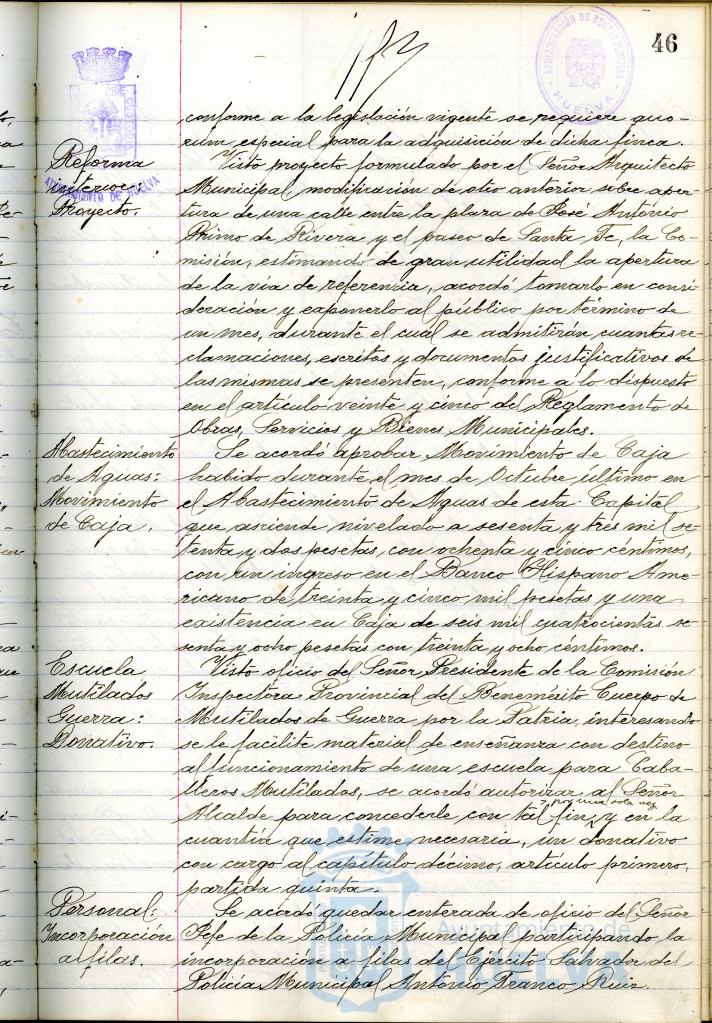 46
ADMINISTRACIÓN DE RENTAS PÚBLICAS
HUELVA
AYUNTAMIENTO DE HUELVA
conforme a la legislación vigente se requiere quo-
rum especial para la adquisición de dicha finca.
Reforma
interior:
Proyecto.
Visto proyecto formulado por el Señor Arquitecto
Municipal, modificación de otro anterior sobre aper-
tura de una calle entre la plaza de José Antonio
Primo de Rivera y el paseo de Santa Fe, la Co-
misión, estimando de gran utilidad la apertura
de la vía de referencia, acordó tomarlo en consi-
deración y exponerlo al público por término de
un mes, durante el cual se admitirán cuantas re-
clamaciones, escritos y documentos justificativos de
las mismas se presenten, conforme a lo dispuesto
en el artículo veinte y cinco del Reglamento de
Obras, Servicios y Bienes Municipales.
Abastecimiento
de Aguas:
Movimiento
de Caja.
Se acordó aprobar Movimiento de Caja
habido durante el mes de Octubre último en
el Abastecimiento de Aguas de esta Capital
que asciende nivelado a sesenta y tres mil se-
tenta y dos pesetas, con ochenta y cinco céntimos,
con un ingreso en el Banco Hispano Ame-
ricano de treinta y cinco mil pesetas y una
existencia en Caja de seis mil cuatrocientas se-
senta y ocho pesetas con treinta y ocho céntimos.
Escuela
Mutilados
Guerra:
Donativo.
Visto oficio del Señor Presidente de la Comisión
Inspectora Provincial del Benemérito Cuerpo de
Mutilados de Guerra por la Patria, interesando
se le facilite material de enseñanza con destino
al funcionamiento de una escuela para Caba-
lleros Mutilados, se acordó autorizar al Señor
por una sola vez
Alcalde para concederle con tal fin, y en la
cuantía que estime necesaria, un donativo
con cargo al capítulo décimo, artículo primero,
partida quinta.
Personal:
Incorporación
a filas.
Se acordó quedar enterada de oficio del Señor
Jefe de la Policía Municipal participando la
incorporación a filas del Ejército Salvador del
Policía Municipal Antonio Franco Ruiz.
Ayuntamiento de
HUELVA